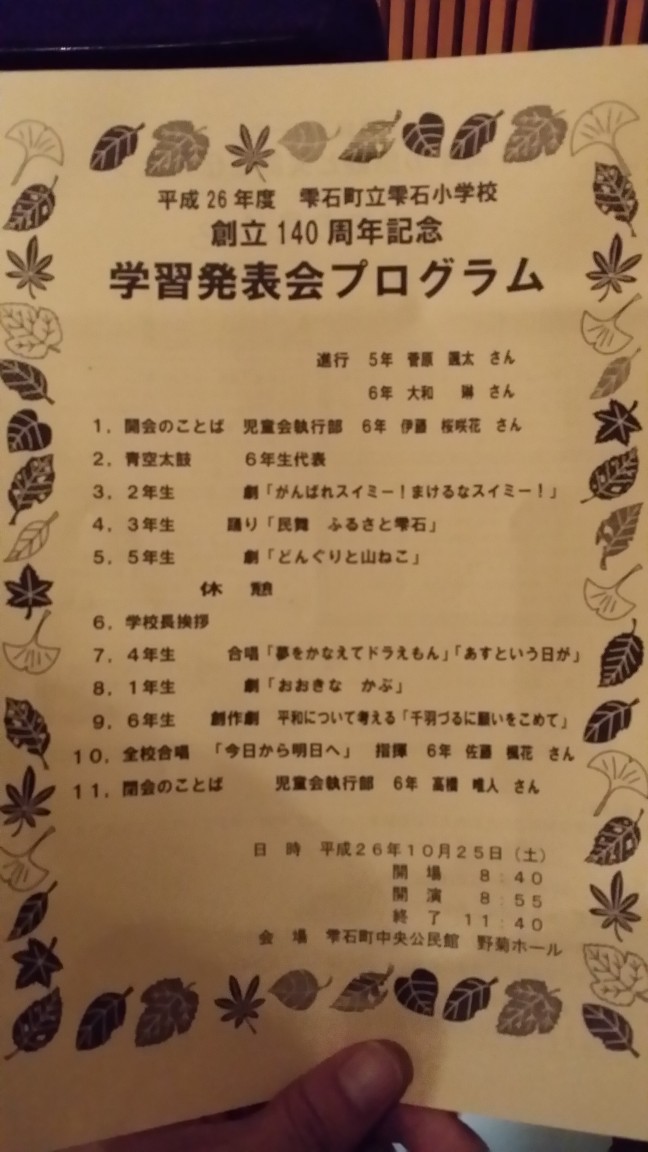 平成26年度　雫石町立雫石小学校
創立140周年記念
学習発表会プログラム
進行　5年　菅原　颯太　さん
6年　大和　　琳　さん
1．開会のことば　児童会執行部　6年　伊藤　桜咲花　さん
2．青空太鼓　　　6年生代表
3．2年生　　　　劇「がんばれスイミー！まけるなスイミー！」
4．3年生　　　踊り「民舞　ふるさと雫石」
5．5年生　　　　劇「どんぐりと山ねこ」
休　憩
6．学校長挨拶
7．4年生　　　合唱「夢をかなえてドラえもん」「あすという日が」
8．1年生　　　　劇「おおきな　かぶ」
9．6年生　　創作劇　平和について考える「千羽づるに願いをこめて」
10．全校合唱　「今日から明日へ」　指揮　6年　佐藤　楓花　さん
11．閉会のことば　　　児童会執行部　6年　高橋　唯人　さん
日　時　平成26年10月25日（土）
開　場　　8：40
開　演　　8：55
終　了　11：40
会　場　雫石町中央公民館　野菊ホール